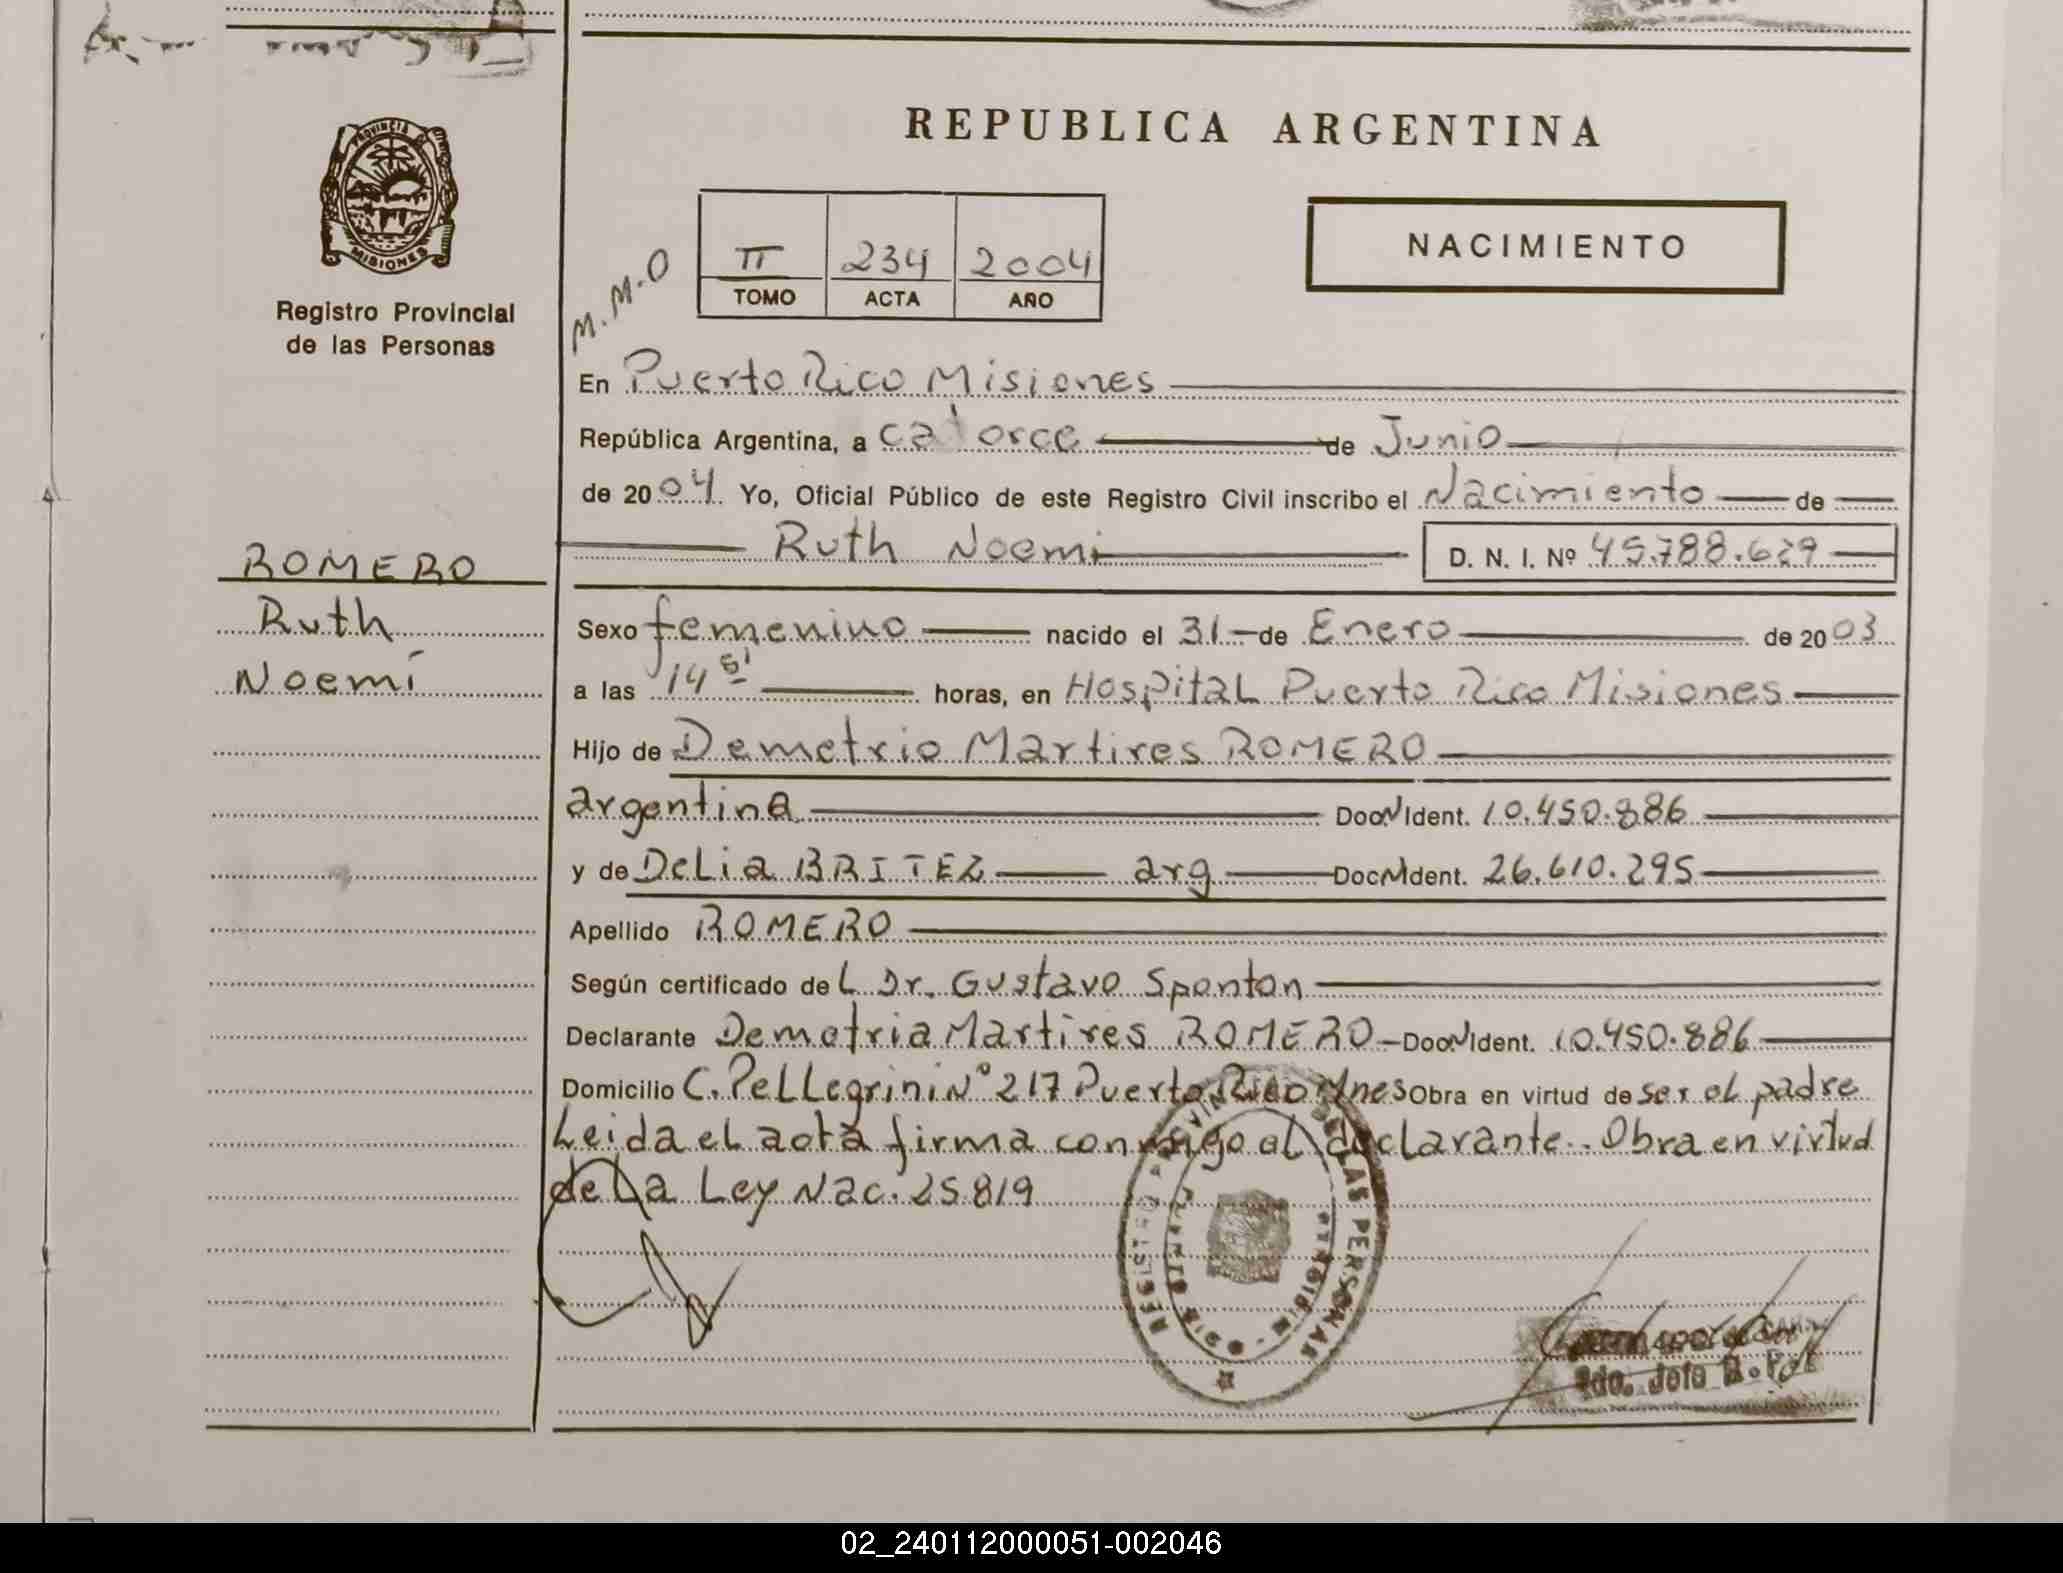 REPUBLICA ARGENTINA
PROVINCIA DE MISIONES
Registro Provincial
de las Personas
NACIMIENTO
M.M.O
II 234 2004
TOMO ACTA AÑO
En Puerto Rico Misiones
República Argentina, a catorce de Junio
de 2004. Yo, Oficial Público de este Registro Civil inscribo el Nacimiento de
Ruth Noemi D. N. I. Nº 45.788.629
ROMERO
Ruth
Noemí
Sexo femenino nacido el 31 de Enero de 2003
a las 14 51 horas, en Hospital Puerto Rico Misiones
Hijo de Demetrio Martires ROMERO
argentina DocNIdent. 10.450.886
y de Delia BRITEZ arg DocNIdent. 26.610.295
Apellido ROMERO
Según certificado del Dr. Gustavo Sponton
Declarante Demetria Martires ROMERO DocNIdent. 10.450.886
Domicilio C. Pellegrini Nº 217 Puerto Rico Mnes Obra en virtud de ser el padre
Leida el acta firma conmigo el declarante.. Obra en virtud
de la Ley Nac. 25819
REGISTRO PROVINCIAL DE LAS PERSONAS
PUERTO RICO - MISIONES
02_240112000051-002046